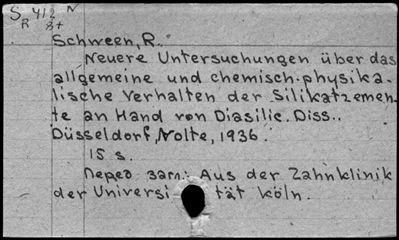 S 412 N
R 8+
Schween, R.
Neuere Untersuchungen über das
allgemeine und chemisch-physika-
lische Verhalten der Silikatzemen-
te an Hand von Diasilic. Diss..
Düsseldorf, Nolte, 1936.
15 s.
Перед загл: Aus der Zahnklinik
der Universität Köln.